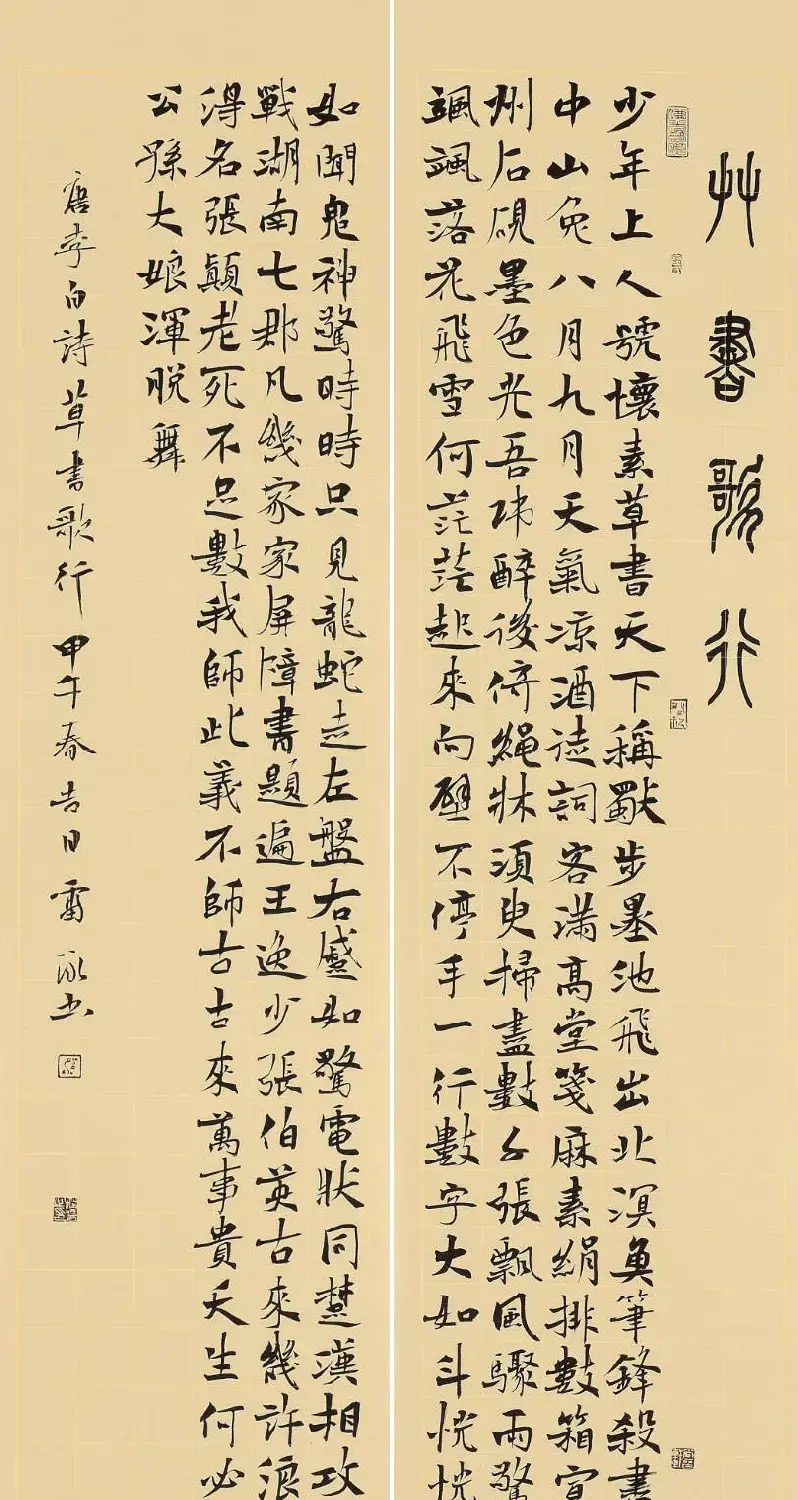 艸書歌行
少年上人號懷素草書天下稱獨步墨池飛出北溟魚筆鋒殺盡
中山兔八月九月天氣涼酒徒詞客滿高堂箋麻素絹排數箱宣
州石硯墨色光吾師醉後倚繩牀須臾掃盡數千張飄風驟雨驚
颯颯落花飛雪何茫茫起來向壁不停手一行數字大如斗恍恍
如聞鬼神驚時時只見龍蛇走左盤右蹙如驚電狀同楚漢相攻
戰湖南七郡凡幾家家屏障書題遍王逸少張伯英古來幾許浪
得名張顛老死不足數我師此義不師古古來萬事貴天生何必
公孫大娘渾脫舞
唐李白詩草書歌行甲午春吉日雷书